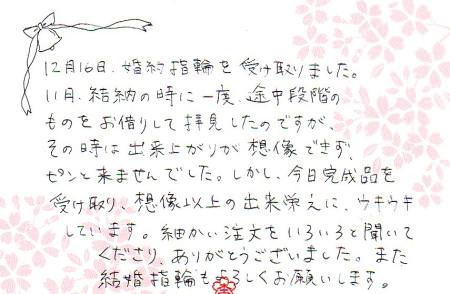 12月16日、婚約指輪を受け取りました。
11月、結納の時に一度、途中段階の
ものをお借りして拝見したのですが、
その時は出来上がりが想像できず、
ピンと来ませんでした。しかし、今日完成品を
受け取り、想像以上の出来栄えに、ウキウキ
しています。細かい注文をいろいろと聞いて
くださり、ありがとうございました。また
結婚指輪もよろしくお願いします。